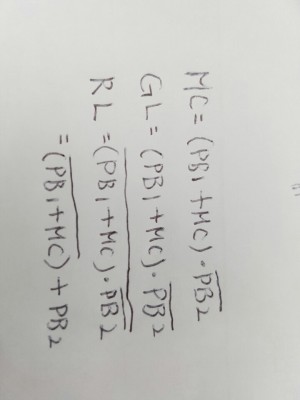 MC = (PB1+MC)·P̅B̅2̅
GL = (PB1+MC)·P̅B̅2̅
RL = (̅P̅B̅1̅+̅M̅C̅)̅·̅P̅B̅2̅
= (̅P̅B̅1̅+̅M̅C̅)̅ + PB2